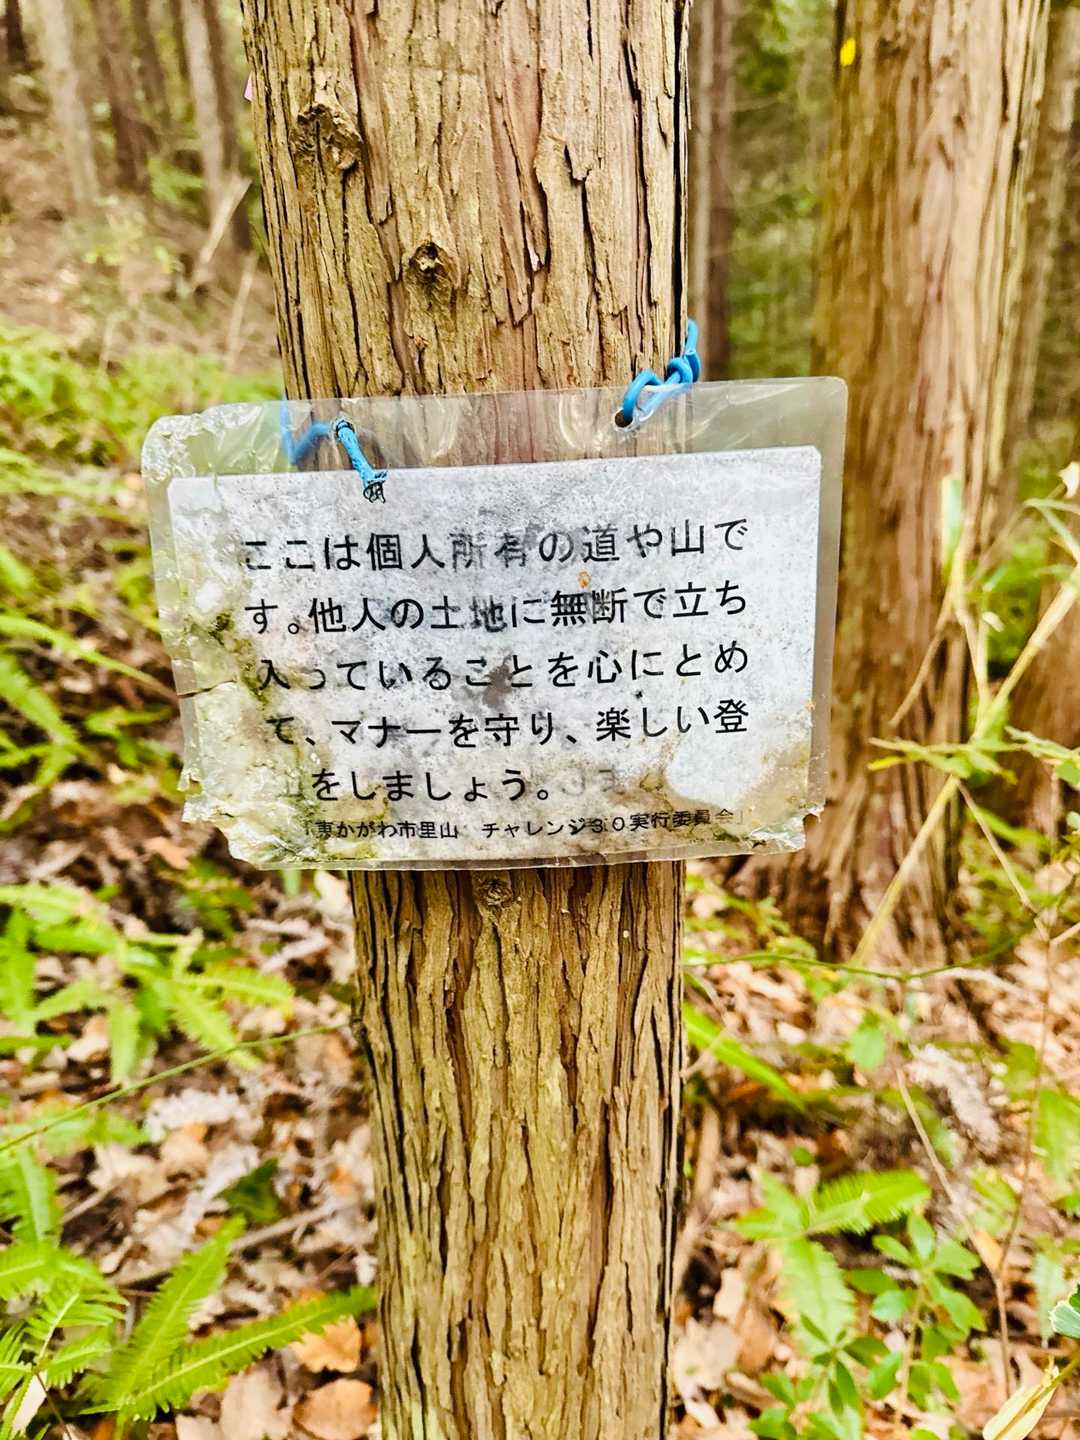 ここは個人所有の道や山で
す。他人の土地に無断で立ち
入っていることを心にとめ
て、マナーを守り、楽しい登
山をしましょう。
「東かがわ市里山　チャレンジ３０実行委員会」